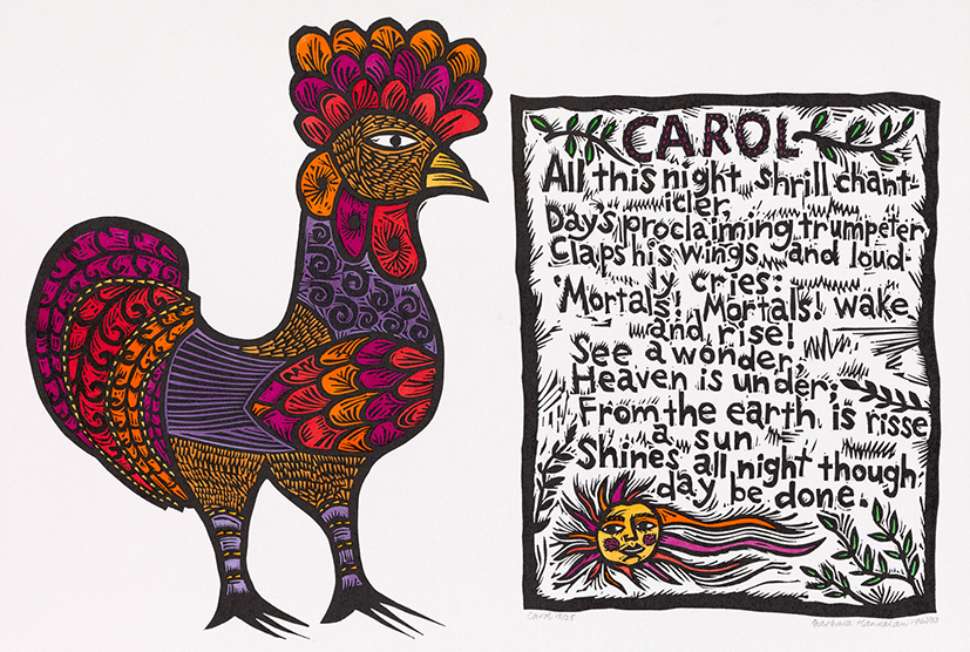 CAROL
All this night shrill chant-
icler,
Days proclaiming trumpeter,
Claps his wings and loud-
ly cries:
Mortals! Mortals! wake
and rise!
See a wonder,
Heaven is under;
From the earth is risse
a sun
Shines all night though
day be done.
Carol
Barbara Hanrahan